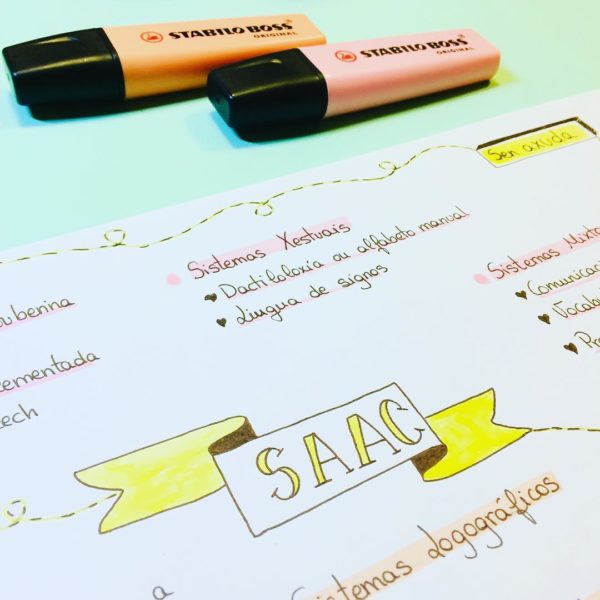 STABILO BOSS
ORIGINAL
STABILO BOSS
ORIGINAL
Sen axuda
Sistemas Xestuais
Dactiloloxía ou alfabeto manual
Lingua de signos
Sistemas Mixto
Comunicaci
Vocabu
Pr
ouberina
ementada
ech
SAAC
Sistemas Logográficos
a